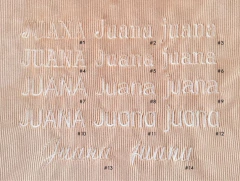 JUANA Juana juana
#1 #2 #3
JUANA Juana juana
#4 #5 #6
JUANA Juana juana
#7 #8 #9
JUANA Juana juana
#10 #11 #12
#13 #14